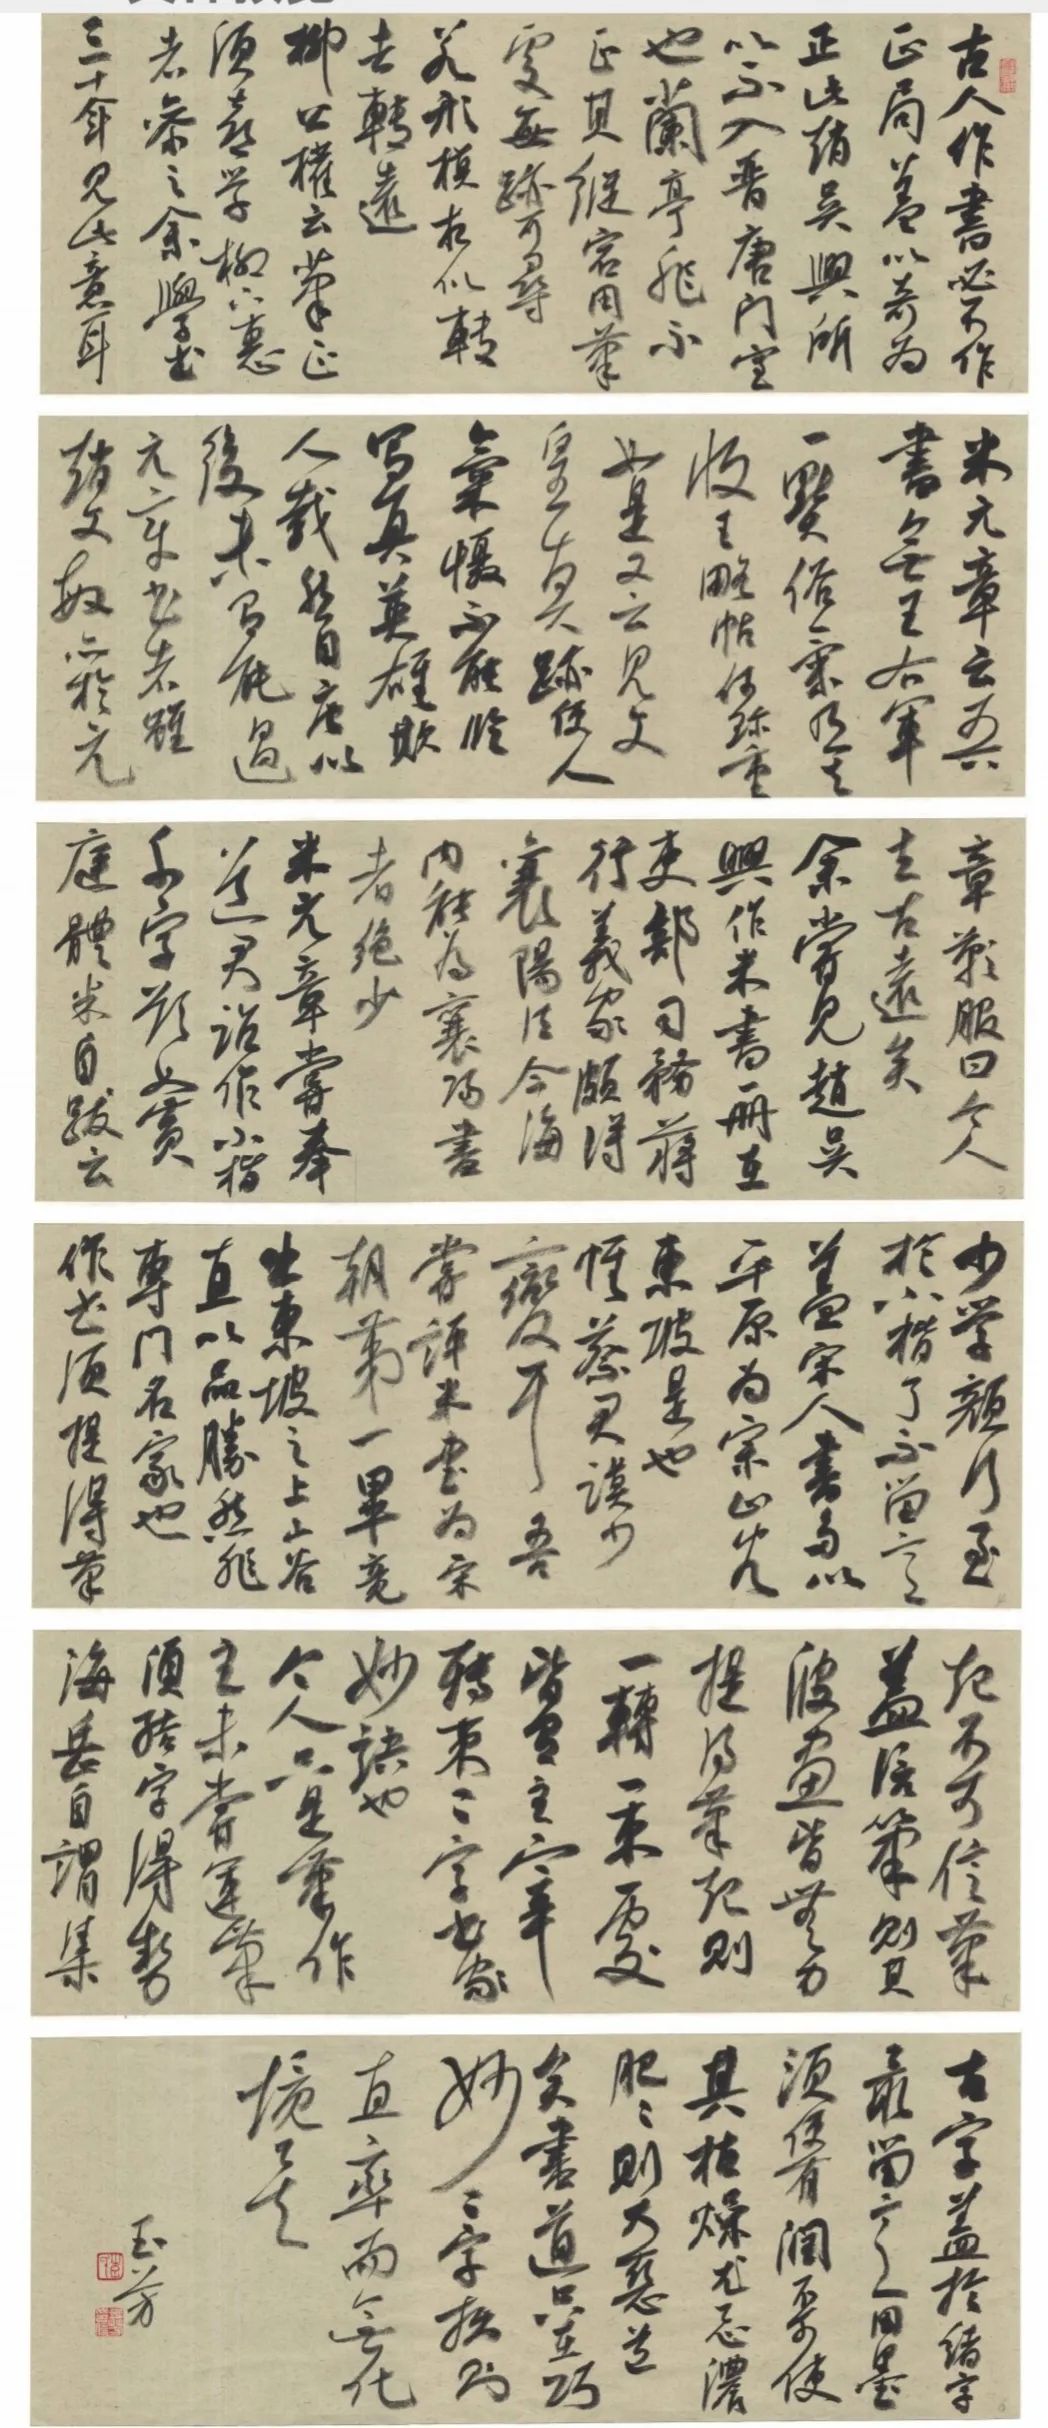 古人作書必不作
正局蓋以奇為
正此趙吳興所
以不入晉唐門室
也蘭亭非不
正其縱宕用筆
處無跡可尋
若形模相似轉
去轉遠
柳公權云筆正
須善學柳下惠
者參之余學書
三十年見此意耳
米元章云吾
書無王右軍
一點俗氣乃其
收王略帖何珍重
如是又云見文
皇真跡使人
氣懾不能臨
寫真英雄欺
人哉然自唐以
後未有能過
元章書者雖
趙文敏亦於元
章歎服曰今人
去古遠矣
余嘗見趙吳
興作米書一冊在
吏部司務蔣
行義家頗得
襄陽法今海
內能為襄陽書
者絕少
米元章嘗奉
道君詔作小楷
千字欲如黃
庭體米自跋云
少學顏行至
於小楷了不留意
蓋宋人書多以
平原為宗山谷
東坡是也
惟蔡君謨少
變耳吾
嘗評米書為宋
朝第一畢竟
出東坡之上山谷
直以品勝然非
專門名家也
作書須提得筆
起不可信筆
蓋信筆則其
波畫皆無力
提得筆起則
一轉一束處
皆有主宰
轉束二字書家
妙訣也
今人只是筆作
主未嘗運筆
須結字得勢
海岳自謂集
古字蓋於結字
最留意用墨
須使有潤不可使
其枯燥尤忌濃
肥肥則大惡道
矣書道只在巧
妙二字拙則
直率而無化
境矣
玉芳